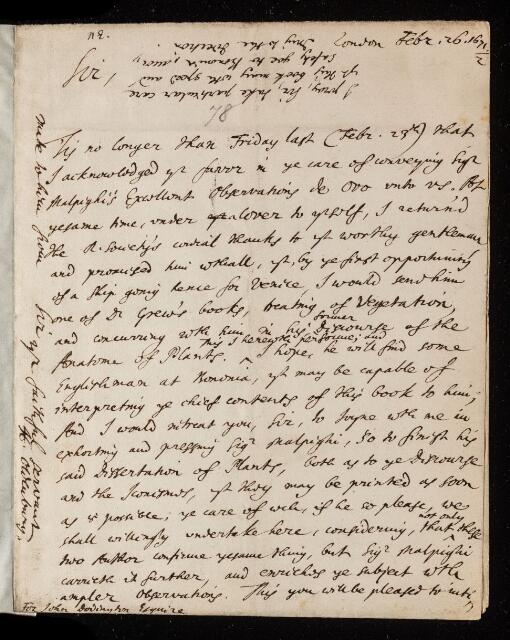 London Febr. 26. 167 1/2
Sir,
I pray, Sir, take particular care
yt this book may with speed and
safely goe to Bononia, since
they to the
78
Tis no longer than Friday last (Febr. 23th) that
I acknowledged yr favor in ye care of conveying Sigr
Malpighi's Excellent Observations de Ovo unto us. At
yesame time, under a cover to yrself, I return'd
the R. Society's cordial thanks to yt worthy gentleman
and promised him withall, yt, by ye first opportunity
of a ship going hence for Venice, I would send him
one of Dr Grew's books, treating of Vegetation,
and concurring with him in his former Discourse of the
Anatome of Plants. This I herewith performe; and
I hope, he will find some
Englishman at Bononia, yt may be capable of
interpreting ye chief contents of this book to him;
And I would intreat you, Sir, to joyne with me in
exhorting and pressing Sigr Malpighi, so to finish his
said Dissertation of Plants, both as to ye Discourse
and the Iconismes, yt they may be printed as soon
as is possible; ye care of wch, if he so please, we
shall willingly undertake here, considering, not only that these
two Author confirme yesame thing, but Sigr Malpighi
carrieth it further, and enriches ye subject with
ampler Observations. This you will be pleased to inti
For John Dodington Esquire
mate to him from Sir yr faithful servant
H. Oldenburg.